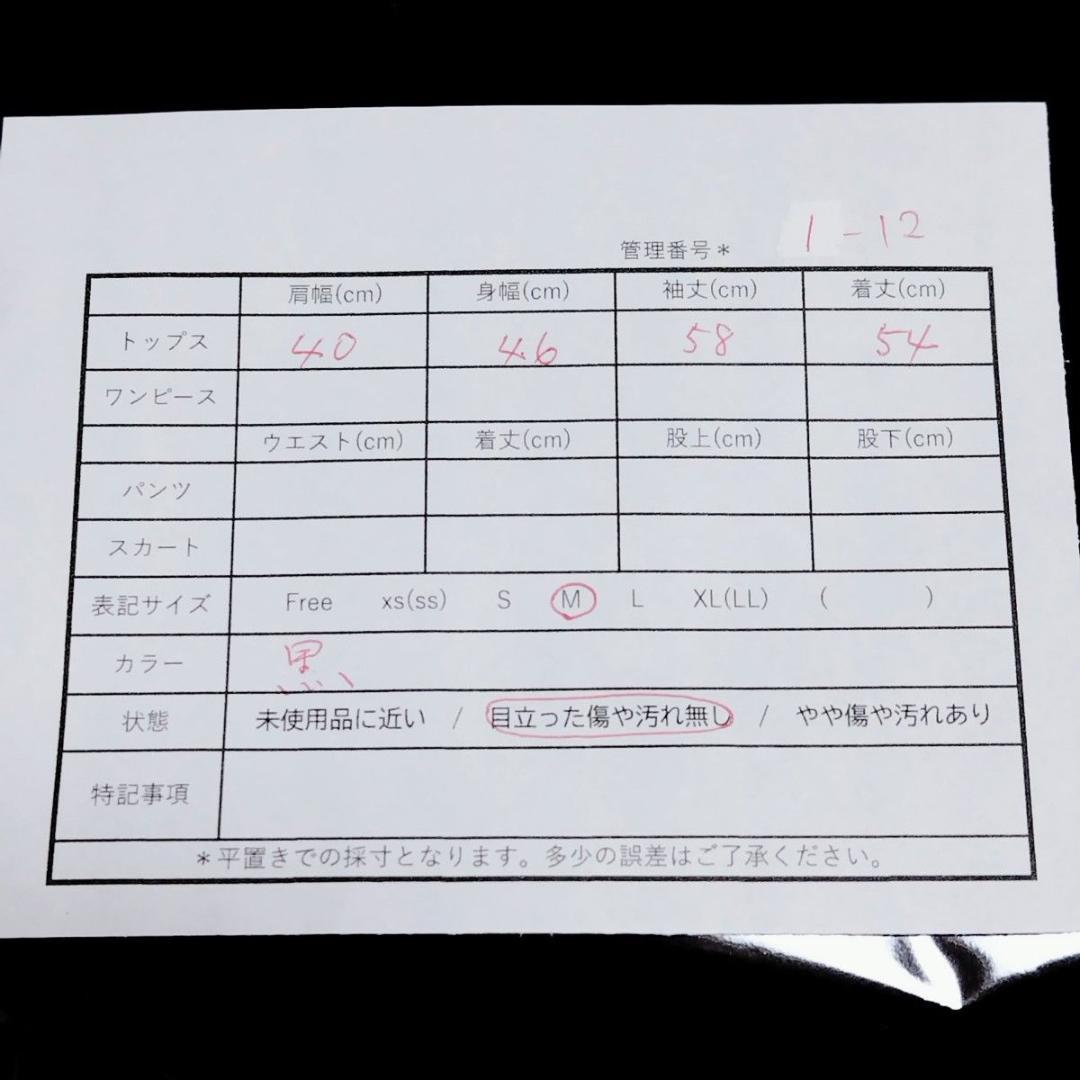 管理番号* 1-12
肩幅(cm) 身幅(cm) 袖丈(cm) 着丈(cm)
トップス 40 46 58 54
ワンピース
ウエスト(cm) 着丈(cm) 股上(cm) 股下(cm)
パンツ
スカート
表記サイズ Free xs(ss) S M L XL(LL) ( )
カラー 黒
状態 未使用品に近い / 目立った傷や汚れ無し / やや傷や汚れあり
特記事項
*平置きでの採寸となります。多少の誤差はご了承ください。